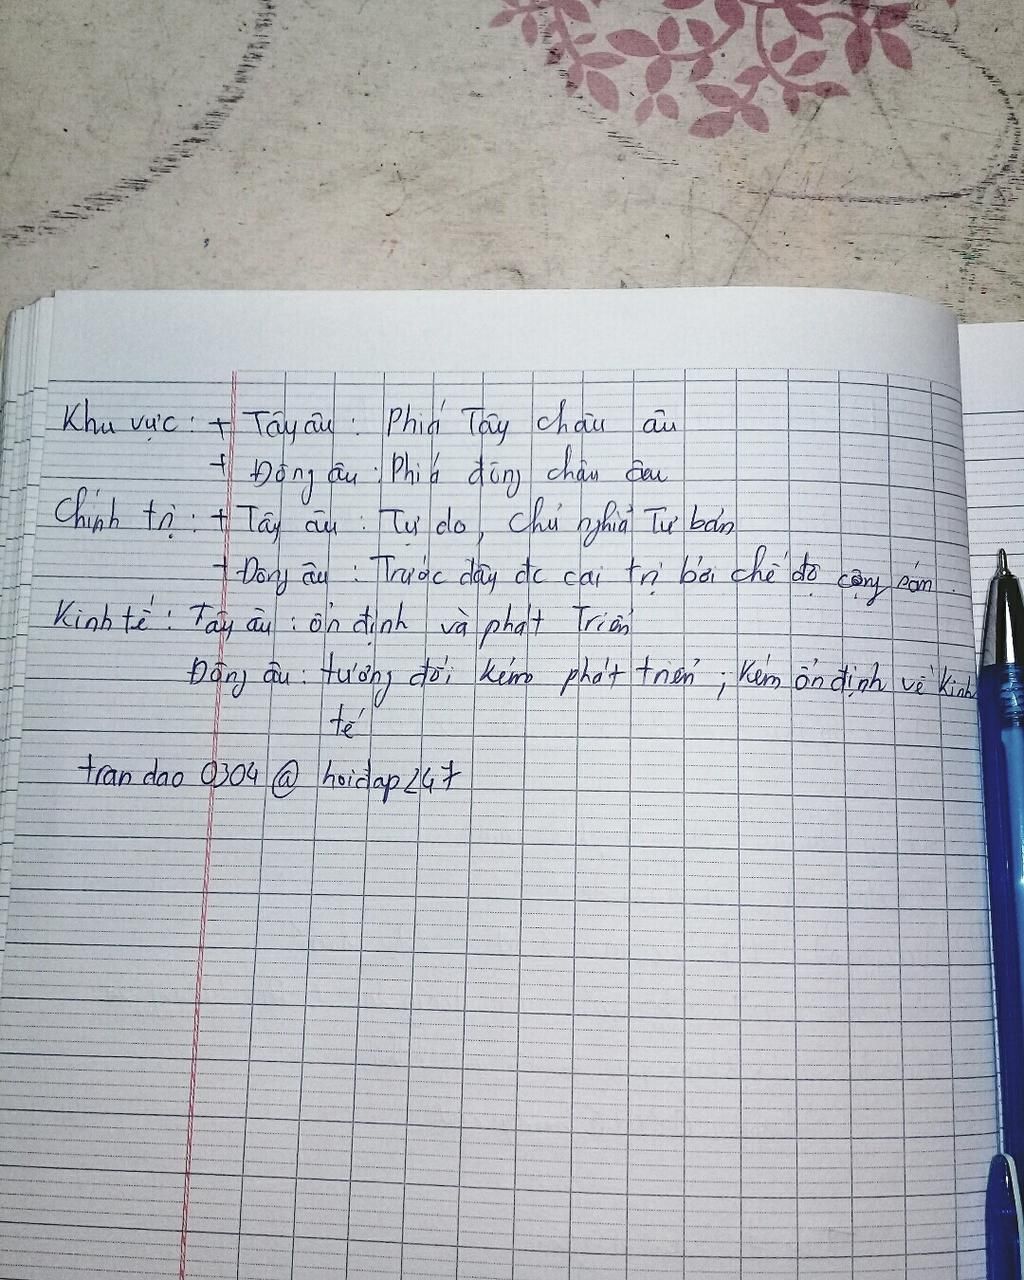 Khu vực : + Tây âu : Phiá Tây châu âu
+ Đông âu : Phiá đông châu âu
Chính trị : + Tây âu : Tự do, chủ nghiả Tư bản
+ Đông âu : Trước đây đc cai trị bởi chế độ cộng sản.
Kinh tế : Tây âu : ổn định và phát Triển
Đông âu : tương đối kém phát triển ; kém ổn định về kinh
tế
tran dao 0304 @ hoidap247